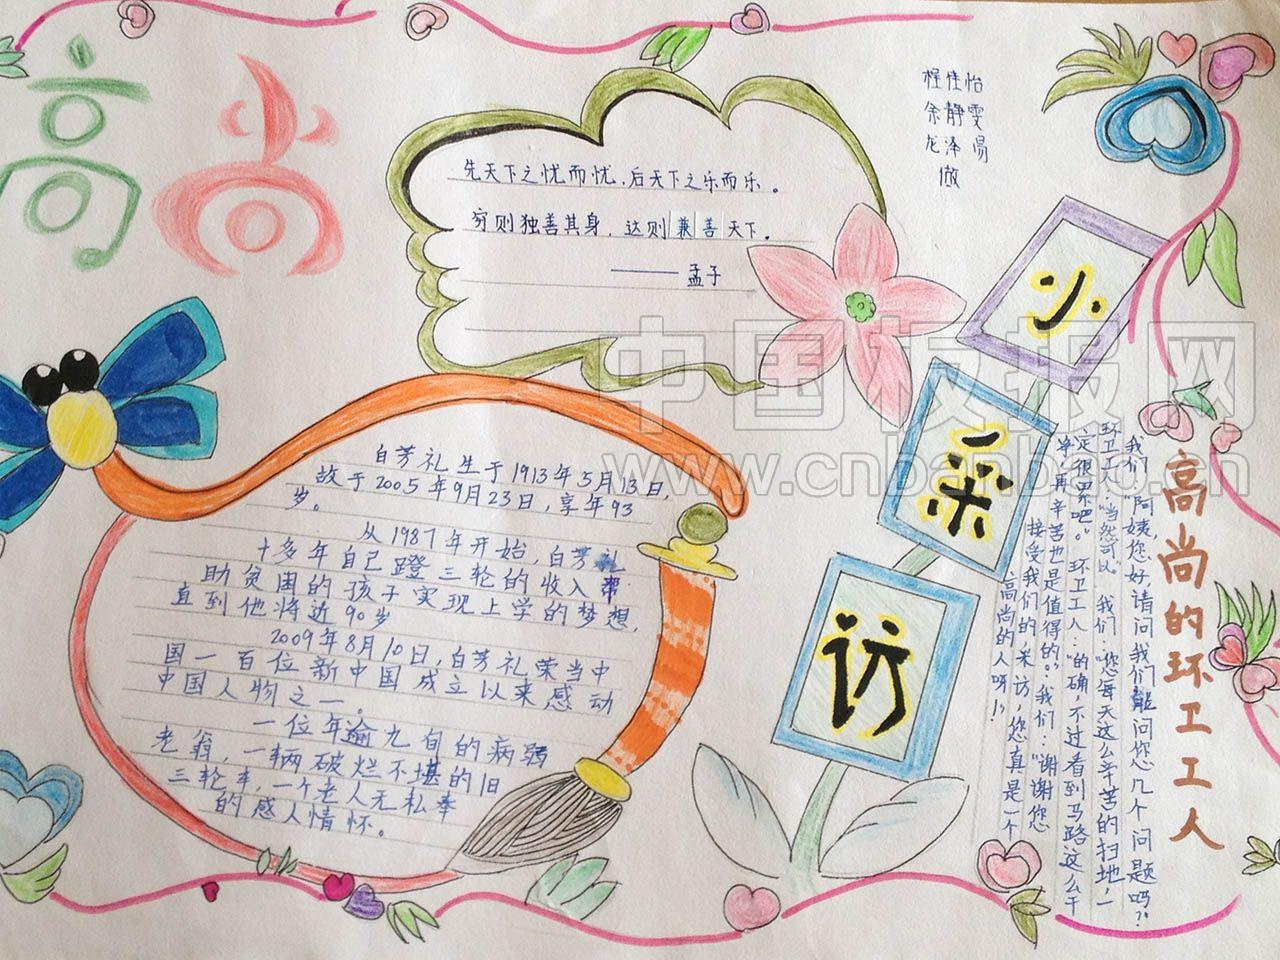 高尚
程佳怡
余静雯
龙泽
做
先天下之忧而忧,后天下之乐而乐。
穷则独善其身,达则兼善天下。
——孟子
小采访
白芳礼生于1913年5月13日,
故于2005年9月23日,享年93
岁。
从1987年开始,白芳礼
十多年自己蹬三轮的收入帮
助贫困的孩子实现上学的梦想,
直到他将近90岁
2009年8月10日,白芳礼荣当中
国一百位新中国成立以来感动
中国人物之一。
一位年逾九旬的病弱
老翁,一辆破烂不堪的旧
三轮车,一个老人无私奉
的感人情怀。
高尚的环卫工人
我们:"阿姨您好,请问我们能问您几个问题吗?"
环卫工人:"当然可以"我们:"您每天这么辛苦的扫地,一
定很累吧。"环卫工人:"的确,不过看到马路这么干
净,再辛苦也是值得的。"我们:"谢谢您
接受我们的采访,您真是一个
高尚的人呀!"
中国板报网
www.cnbanbao.cn